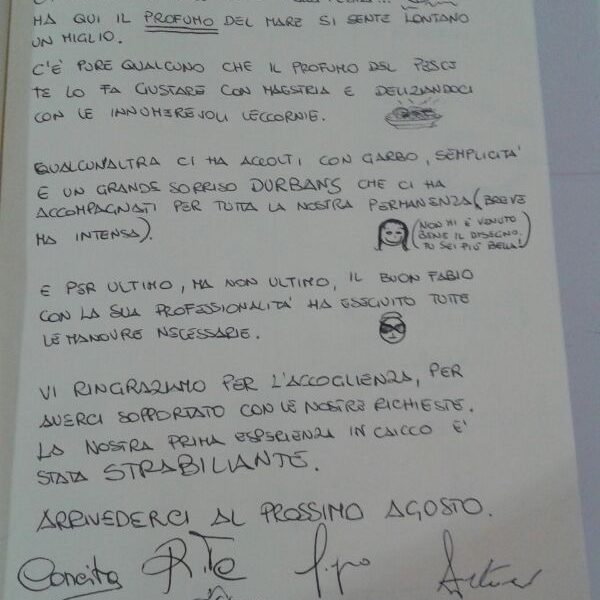 MA QUI IL PROFUMO DEL MARE SI SENTE LONTANO
UN MIGLIO.
C'È PURE QUALCUNO CHE IL PROFUMO DEL PESCE
TE LO FA GUSTARE CON MAESTRIA E DELIZIANDOCI
CON LE INNUMEREVOLI LECCORNIE.
QUALCUN'ALTRA CI HA ACCOLTI CON GARBO, SEMPLICITA'
E UN GRANDE SORRISO DURBANS CHE CI HA
ACCOMPAGNATI PER TUTTA LA NOSTRA PERMANENZA (BREVE
MA INTENSA).
(NON MI È VENUTO
BENE IL DISEGNO,
TU SEI PIÙ BELLA!)
E PER ULTIMO, MA NON ULTIMO, IL BUON FABIO
CON LA SUA PROFESSIONALITA' HA ESEGUITO TUTTE
LE MANOVRE NECESSARIE.
VI RINGRAZIAMO PER L'ACCOGLIENZA, PER
AVERCI SOPPORTATO CON LE NOSTRE RICHIESTE.
LA NOSTRA PRIMA ESPERIENZA IN CAICCO E'
STATA STRABILIANTE.
ARRIVEDERCI AL PROSSIMO AGOSTO.
Concita Rita Pipo